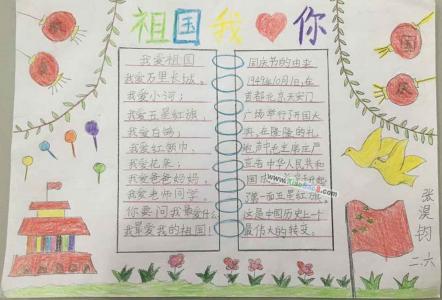 祖国我爱你
欢度国庆
我爱祖国
我爱万里长城。
我爱小河；
我爱五星红旗，
我爱白鸽；
我爱红领巾，
我爱花朵；
我爱爸爸妈妈，
我爱老师同学。
你要问我最爱什么
我最爱我的祖国！
国庆节的由来
1949年10月1日，在
首都北京天安门
广场举行了开国大
典，在隆隆的礼
炮声中毛主席庄严
宣告中华人民共和
国成
第一面五星红旗。
这是中国历史上一个
最伟大的转变。
张淏钧
二.六